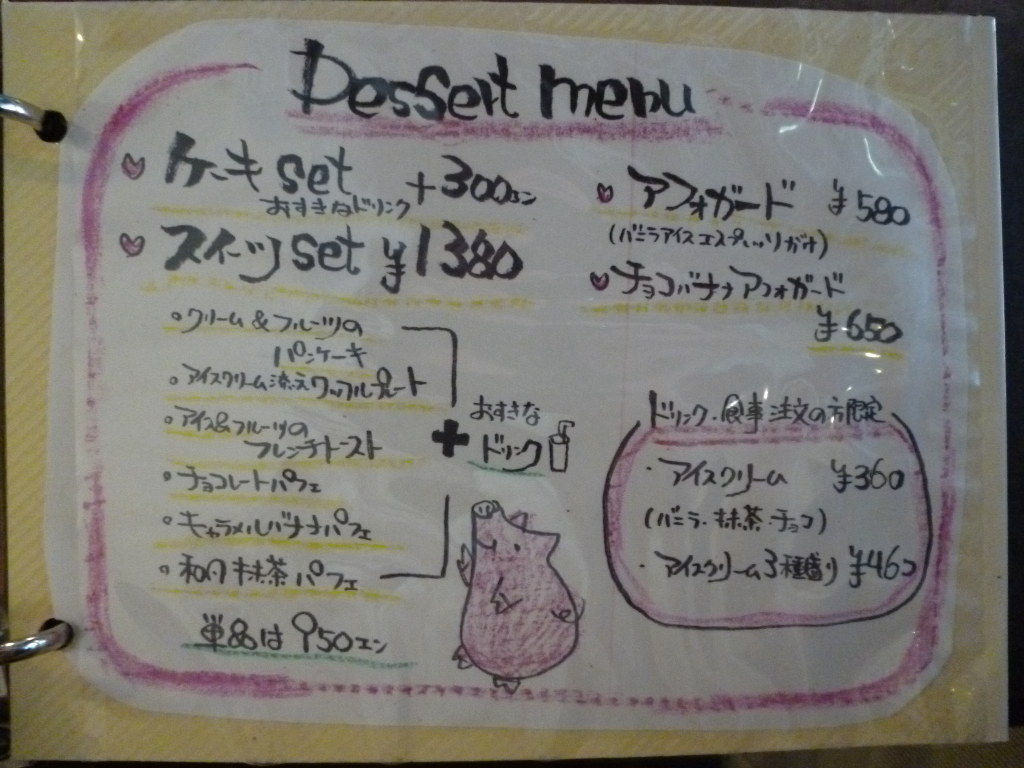 Dessert menu
ケーキset +300エン
おすきなドリンク
スイーツset ¥1380
・クリーム&フルーツの
パンケーキ
・アイスクリーム添えワッフルプレート
・アイス&フルーツの
フレンチトースト
・チョコレートパフェ
・キャラメルバナナパフェ
・和の抹茶パフェ
単品は950エン
+ おすきな
ドリンク
アフォガード ¥580
(バニラアイスエスプレッソがけ)
チョコバナナアフォガード
¥650
ドリンク・食事注文の方限定
・アイスクリーム ¥360
(バニラ・抹茶・チョコ)
・アイスクリーム3種盛り ¥460